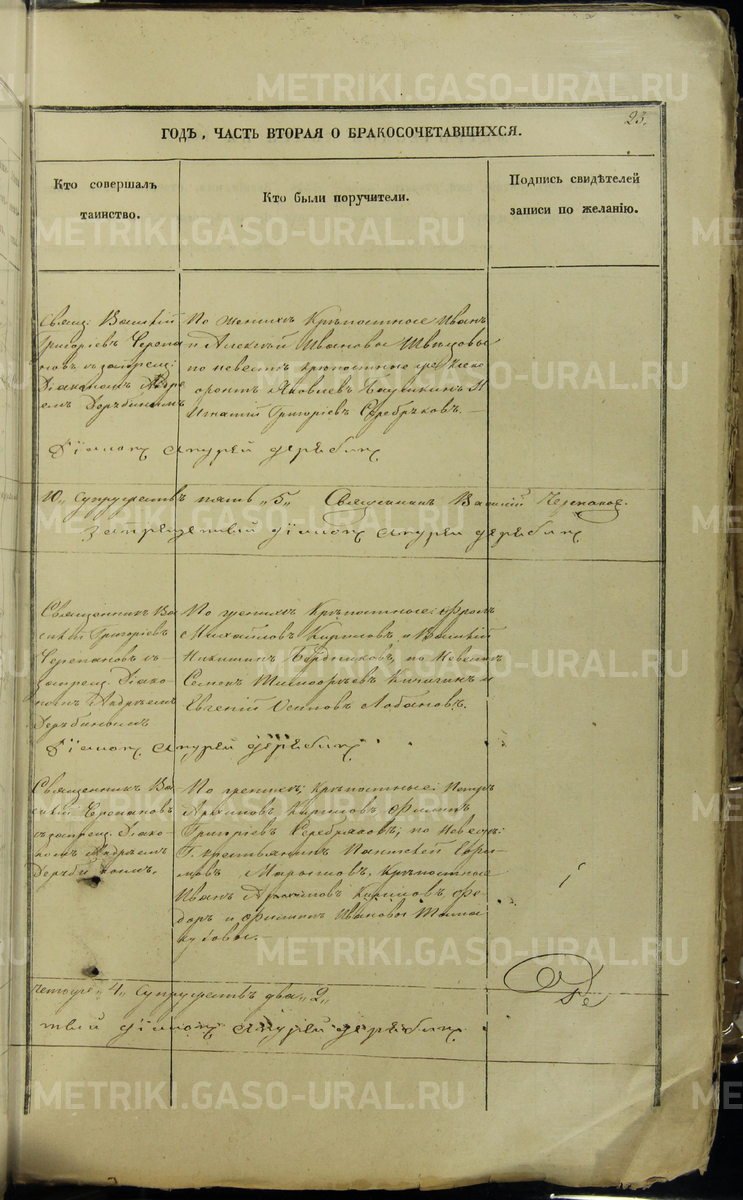 METRIKI.GASO-URAL.RU
23.
ГОДЪ, ЧАСТЬ ВТОРАЯ О БРАКОСОЧЕТАВШИХСЯ.
Кто совершалъ
таинство.
Кто были поручители.
Подпись свидѣтелей
записи по желанію.
Свящ: Василій
Григоріевъ Черепа
новъ съ запрещ:
Діакономъ Андре
емъ Дерѣбинымъ
По женихѣ Крѣпостные Иванъ
и Алексѣй Ивановы Швецовы
по невестѣ крѣпостные
Яковлевъ и
Игнатій Григоріевъ Серебряковъ.
Діаконъ Андрей Дерѣбинъ
10, Супружествъ пять „5„ Священникъ Василій Черепановъ.
Запрещенный Діаконъ Андрей Дерѣбинъ
Священникъ Ва
силій Григоріевъ
Черепановъ съ
запрещ. Діако
номъ Андреемъ
Дерѣбинымъ
По женихѣ Крѣпостные:
Михайловъ Кириловъ и Василій
Никитинъ Бердниковъ, по невестѣ
Семенъ Тимофѣевъ Кичигинъ и
Евгеній Осиповъ Лобановъ.
Діаконъ Андрей Дерѣбинъ
Священникъ Ва
силій Черепановъ
съ запрещ. Діако
номъ Андреемъ
Дерѣбинымъ.
По женихѣ: Крѣпостные: Петръ
Кириловъ, Филипъ
Григоріевъ Серебряковъ; по невес:
Г. крестьянинъ Пантелей Ефи
мовъ Крѣпостные
Иванъ Кириловъ, Фе
доръ и Филипъ Ивановы
четыре „4„ Супружествъ два „2„
Діаконъ Андрей Дерѣбинъ